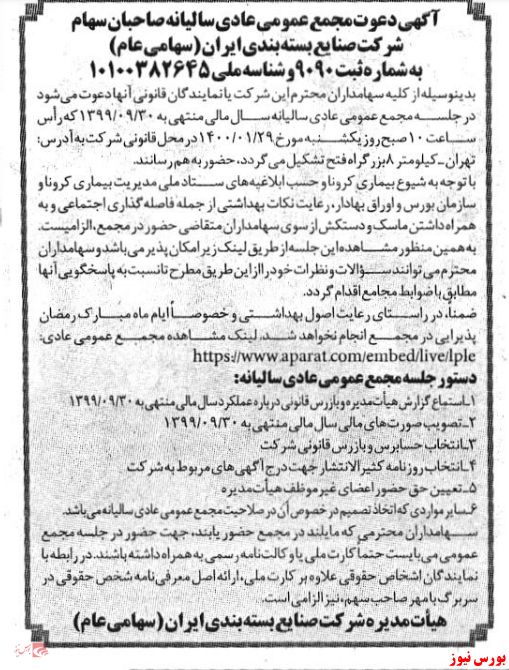 آگهی دعوت مجمع عمومی عادی سالیانه صاحبان سهام
شرکت صنایع بسته بندی ایران (سهامی عام)
به شماره ثبت ۹۰۹۰ و شناسه ملی ۱۰۱۰۰۳۸۲۶۴۵
بدینوسیله از کلیه سهامداران محترم این شرکت یا نمایندگان قانونی آنها دعوت می شود
در جلسه مجمع عمومی عادی سالیانه سال مالی منتهی به ۱۳۹۹/۰۹/۳۰ که رأس
ساعت ۱۰ صبح روز یکشنبه مورخ ۱۴۰۰/۰۱/۲۹ در محل قانونی شرکت به آدرس:
تهران ـ کیلومتر ۸ بزرگراه فتح تشکیل می گردد، حضور به هم رسانند.
با توجه به شیوع بیماری کرونا و حسب ابلاغیه های ستاد ملی مدیریت بیماری کرونا و
سازمان بورس و اوراق بهادار، رعایت نکات بهداشتی از جمله فاصله گذاری اجتماعی و به
همراه داشتن ماسک و دستکش از سوی سهامداران متقاضی حضور در مجمع، الزامیست.
به همین منظور مشاهده این جلسه از طریق لینک زیر امکان پذیر می باشد و سهامداران
محترم می توانند سؤالات و نظرات خود را از این طریق مطرح تا نسبت به پاسخگویی آنها
مطابق با ضوابط مجامع اقدام گردد.
ضمناً، در راستای رعایت اصول بهداشتی و خصوصاً ایام ماه مبارک رمضان
پذیرایی در مجمع انجام نخواهد شد. لینک مشاهده مجمع عمومی عادی:
https://www.aparat.com/embed/live/lple
دستور جلسه مجمع عمومی عادی سالیانه:
۱ـ استماع گزارش هیأت مدیره و بازرس قانونی درباره عملکرد سال مالی منتهی به ۱۳۹۹/۰۹/۳۰
۲ـ تصویب صورت های مالی سال مالی منتهی به ۱۳۹۹/۰۹/۳۰
۳ـ انتخاب حسابرس و بازرس قانونی شرکت
۴ـ انتخاب روزنامه کثیرالانتشار جهت درج آگهی های مربوط به شرکت
۵ـ تعیین حق حضور اعضای غیر موظف هیأت مدیره
۶ـ سایر مواردی که اتخاذ تصمیم در خصوص آن در صلاحیت مجمع عمومی عادی سالیانه می باشد.
سهامداران محترمی که مایلند در مجمع حضور یابند، جهت حضور در جلسه مجمع
عمومی می بایست حتماً کارت ملی یا وکالت نامه رسمی به همراه داشته باشند. در رابطه با
نمایندگان اشخاص حقوقی علاوه بر کارت ملی، ارائه اصل معرفی نامه شخص حقوقی در
سربرگ با مهر صاحب سهم، نیز الزامی است.
هیأت مدیره شرکت صنایع بسته بندی ایران (سهامی عام)
بورس نیوز